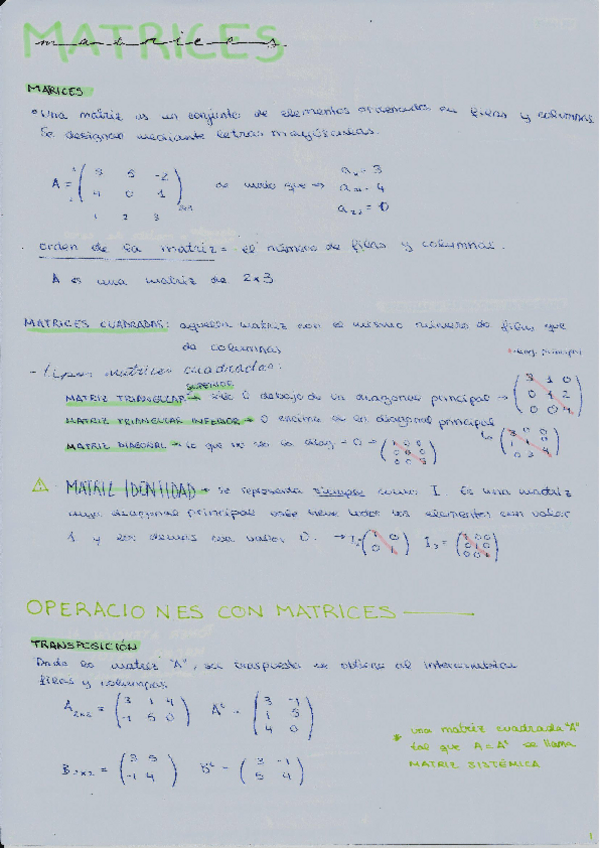 MATRICES
matrices.
MARICES
Una matriz es un conjunto de elementos ordenados en filas y columnas
Se designan mediante letras mayúsculas.
A = ( 3 5 -2
4 0 1 ) 2x3
de modo que ⇒
1 2 3
orden de la matriz = el número de filas y columnas.
A es una matriz de 2x3
MATRICES CUADRADAS: aquella matriz con el mismo número de filas que
de columnas
- tipos matrices cuadradas:
SUPERIOR
MATRIZ TRIANGULAR → 0 debajo de diagonal principal → ( 3 1 0
0 4 2
0 0 4 )
MATRIZ TRIANGULAR INFERIOR → 0 encima de la diagonal principal
MATRIZ DIAGONAL → lo que no sea la diag → 0 →
MATRIZ IDENTIDAD → se representa siempre como I. Es una matriz
cuya diagonal principal tiene todos los elementos con valor
1 y los demás con valor 0. → I2 ( 1 0
0 1 ) I3 = ( 1 0 0
0 1 0
0 0 1 )
OPERACIONES CON MATRICES
TRANSPOSICIÓN
Dada la matriz "A", su traspuesta se obtiene al intercambiar
filas y columnas
A2x3 = ( 3 1 4
-1 5 0 ) At = ( 3 -1
1 5
4 0 )
B2x2 = ( 3 5
-1 4 ) Bt = ( 3 -1
5 4 )
* una matriz cuadrada "A"
tal que A = At se llama
MATRIZ SISTÉMICA
1